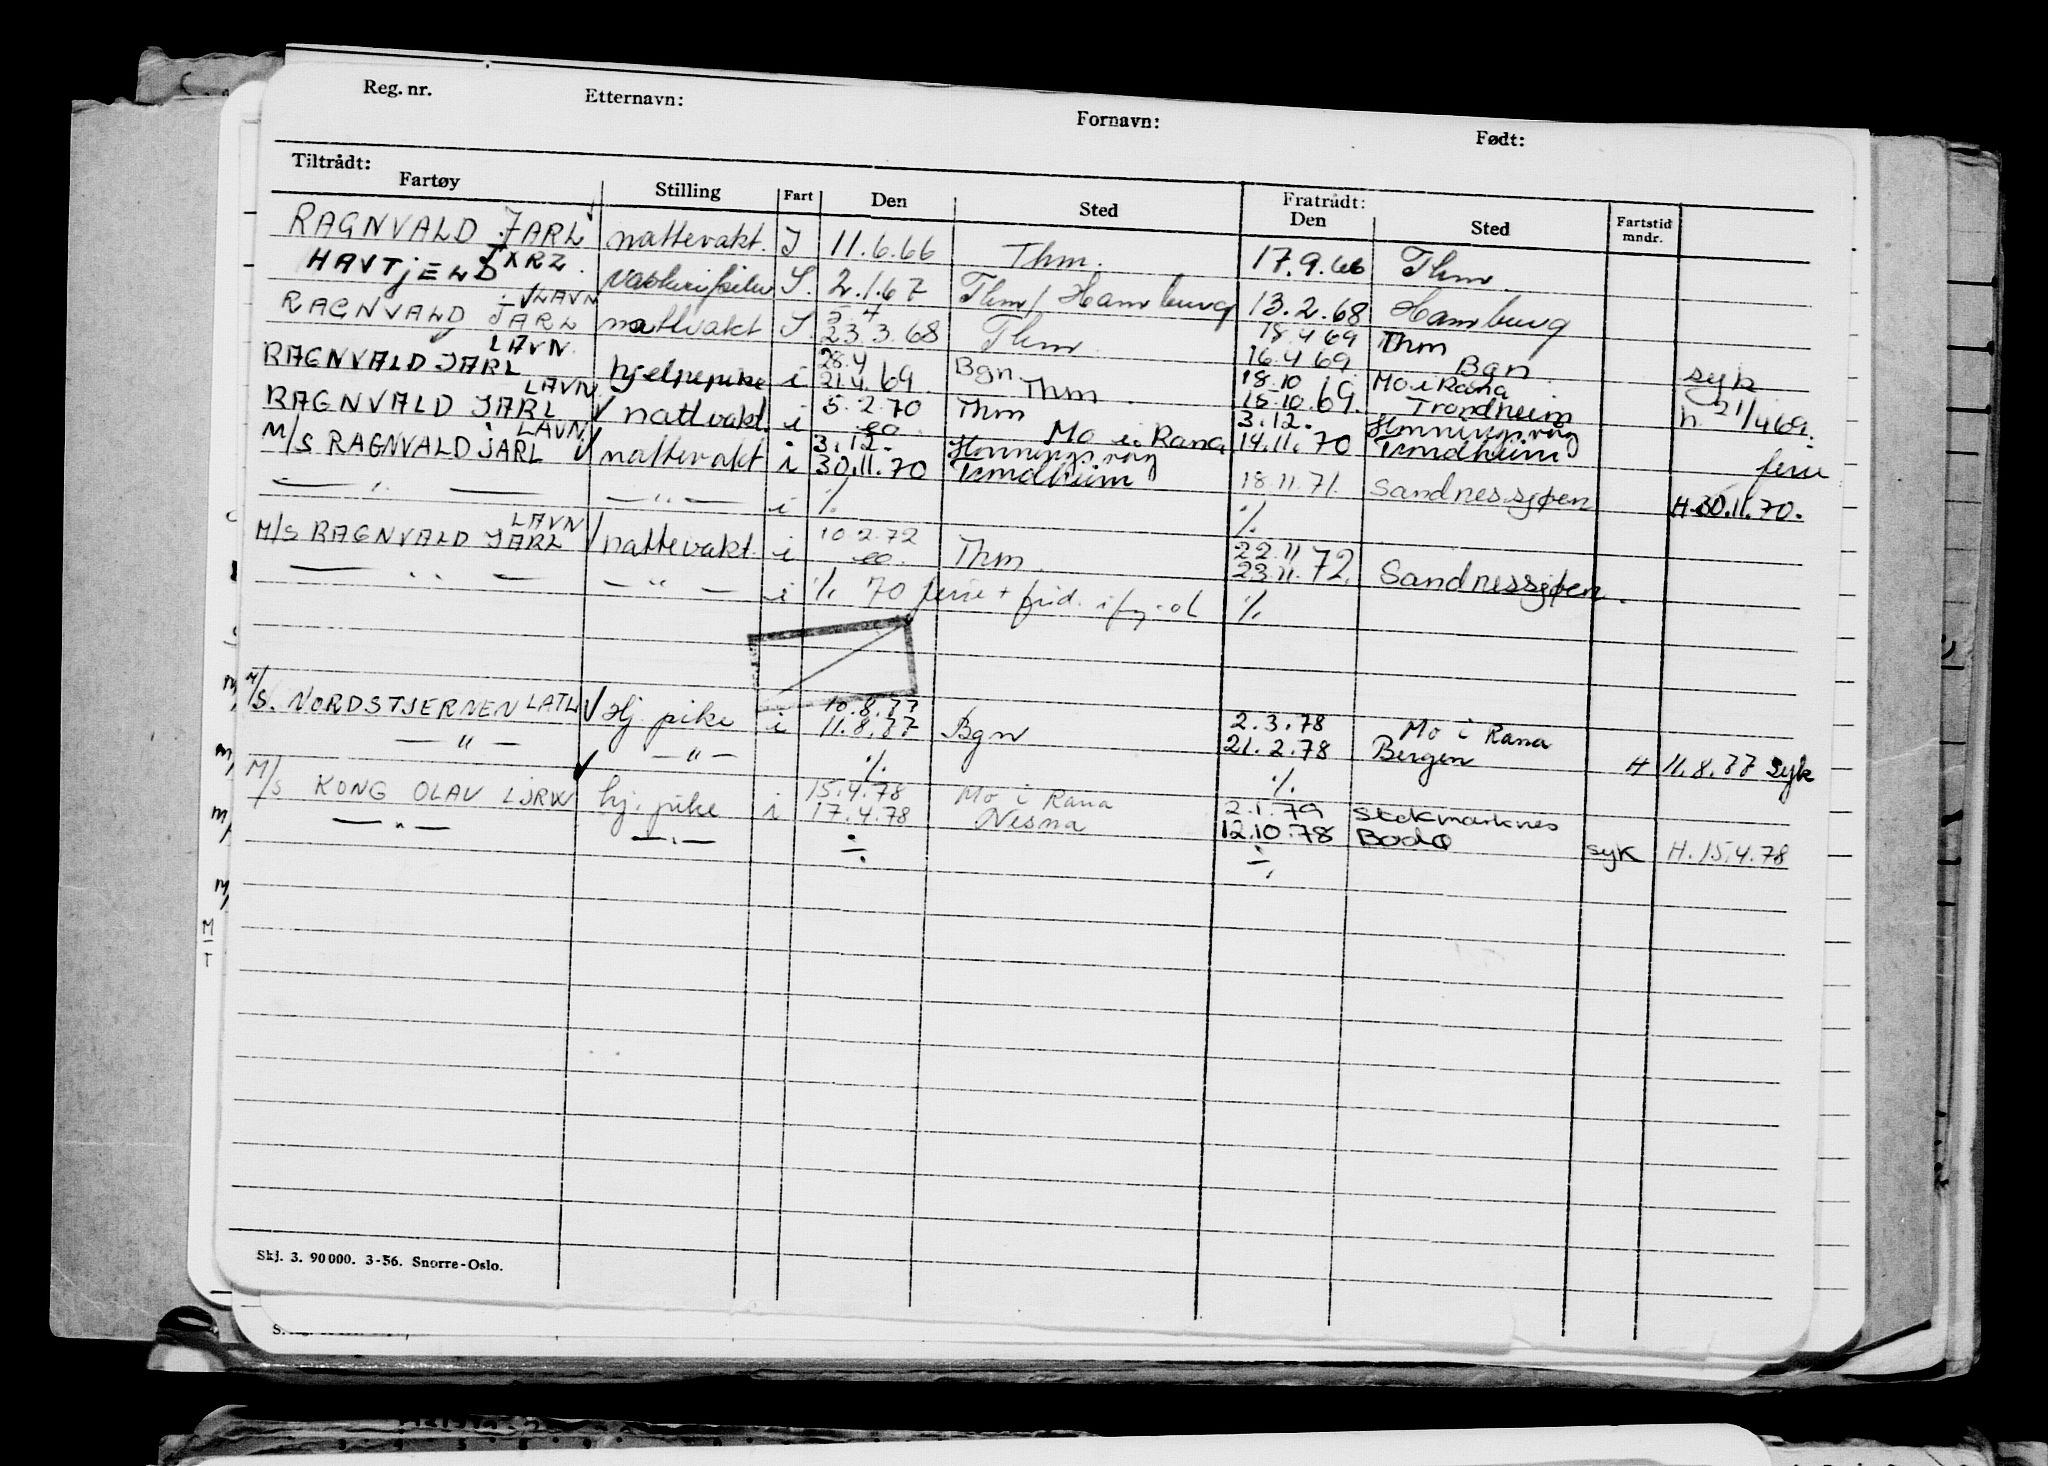 Reg. nr. Etternavn: Fornavn: Født:
Tiltrådt: Fratrådt:
Fartøy Stilling Fart Den Sted Den Sted Fartstid mndr.
RAGNVALD JARL nattevakt. I 11.6.66 Thm. 17.9.66 Thm.
HAVTJELD JXRZ S. 2.1.67 Thm/ Hamburg 13.2.68 Hamburg
LAVN 3.4 18.4 69 Thm
RAGNVALD JARL nattvakt S. 23.3.68 Thm. 16.4 69. Bgn. syk
LAVN. 28.4 Bgn. 18.10 Mo i Rana
RAGNVALD JARL hjelpepike i 21.4.69. Thm. 15.10.69. Trondheim h. 21/4 69.
LAVN 5.2.70 Thm 3.12. Honningsvåg
RAGNVALD JARL nattvakt. i Mo i Rana 14.11.70 Trondheim ferie
LAVN 3.12. Honningsvåg
M/S RAGNVALD JARL nattevakt i 30.11.70 Trondheim 18.11.71. Sandnessjøen H. 30.11.70.
— " — — " — i ./. ./.
LAVN 10.2.72 22.11
M/S RAGNVALD JARL nattevakt. i Thm. 23.11.72. Sandnessjøen.
— " — — " — i ./. 70 ferie + frid. i ./.
10.8.77 2.3.78 Mo i Rana
M/S. NORDSTJERNEN LATL Hj. pike i 11.8.77 Bgn 21.2.78 Bergen H 11.8.77 syk
— " — — " — ./. ./.
15.4.78 Mo i Rana 2.1.79 Stokmarknes
M/S KONG OLAV LJRW hj. pike i 17.4.78 Nesna 12.10.78 Bodø syk H. 15.4.78
— " — — " — ./. ./.
Skj. 3. 90 000. 3-56. Snorre-Oslo.